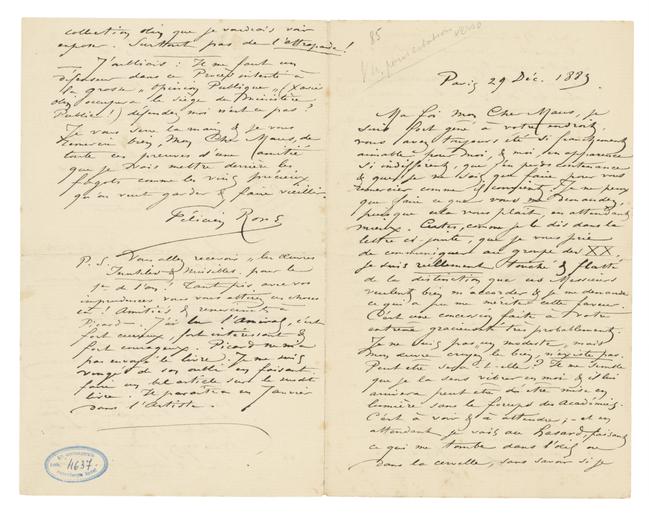 85
Paris 29 Déc. 1885.
Ma foi Mon Cher Maus, je
suis fort gêné à votre endroit.
vous avez toujours été si franchement
aimable pour moi, & moi en apparence
si indifférent, que j'en perds contenance
& que je ne sais que faire pour vous
remercier comme il convient. Je ne peux
que faire ce que vous me demandez,
puisque cela vous plaît, en attendant
mieux. Certes, comme je le dis dans la
lettre ci jointe, que je vous prie
de communiquer au groupe des XX,
je suis réellement touché & flatté
de la distinction que ces Messieurs
veulent bien m'accorder & je me demande
ce qui a pu me mériter cette faveur.
C'est une concession faite à votre
extrême gracieuseté très probablement.
Je ne suis pas un modeste, mais
mon œuvre croyez le bien, n'existe pas.
Peut être sera-t-elle? Il me semble
que je la sens vibrer en moi & qu'il lui
arrivera peut être d'être mise en
lumière sans le forceps des Académies.
C'est à voir & à attendre, - et en
attendant je vais au hasard, faisant
ce qui me tombe dans l'œil ou
dans la cervelle, sans savoir si je
collection que je voudrais voir
exposer. Surtout pas de l'attrapade!
— J'oubliais: Il me faut un
défenseur dans ce Procès intenté à
la grosse "Opinion Publique" (
occupera le siège de Ministère
Public!) défendez moi n'est ce pas?
Je vous serre la main & je vous
remercie bien, Mon Cher Maus, de
toute ces preuves d'une amitié
que je vais mettre derrière les
fagots comme les vins précieux
qu'on veut garder & faire vieillir.
Félicien Rops
P.S. Vous allez recevoir "les Œuvres
Inutiles & Nuisibles" pour le
1er de l'an! Tant pis, avec vos
imprudences vous vous attirez ces choses
là! Amitiés & remerciements à
Picard. J'ai lu l'Amiral, c'est
fort curieux, fort intéressant &
fort courageux. Picard ne m'a
pas envoyé le livre. Je me suis
vengé de son oubli en faisant
faire un bel article sur le susdit
livre. Il paraîtra en Janvier
dans l'Artiste.
4637